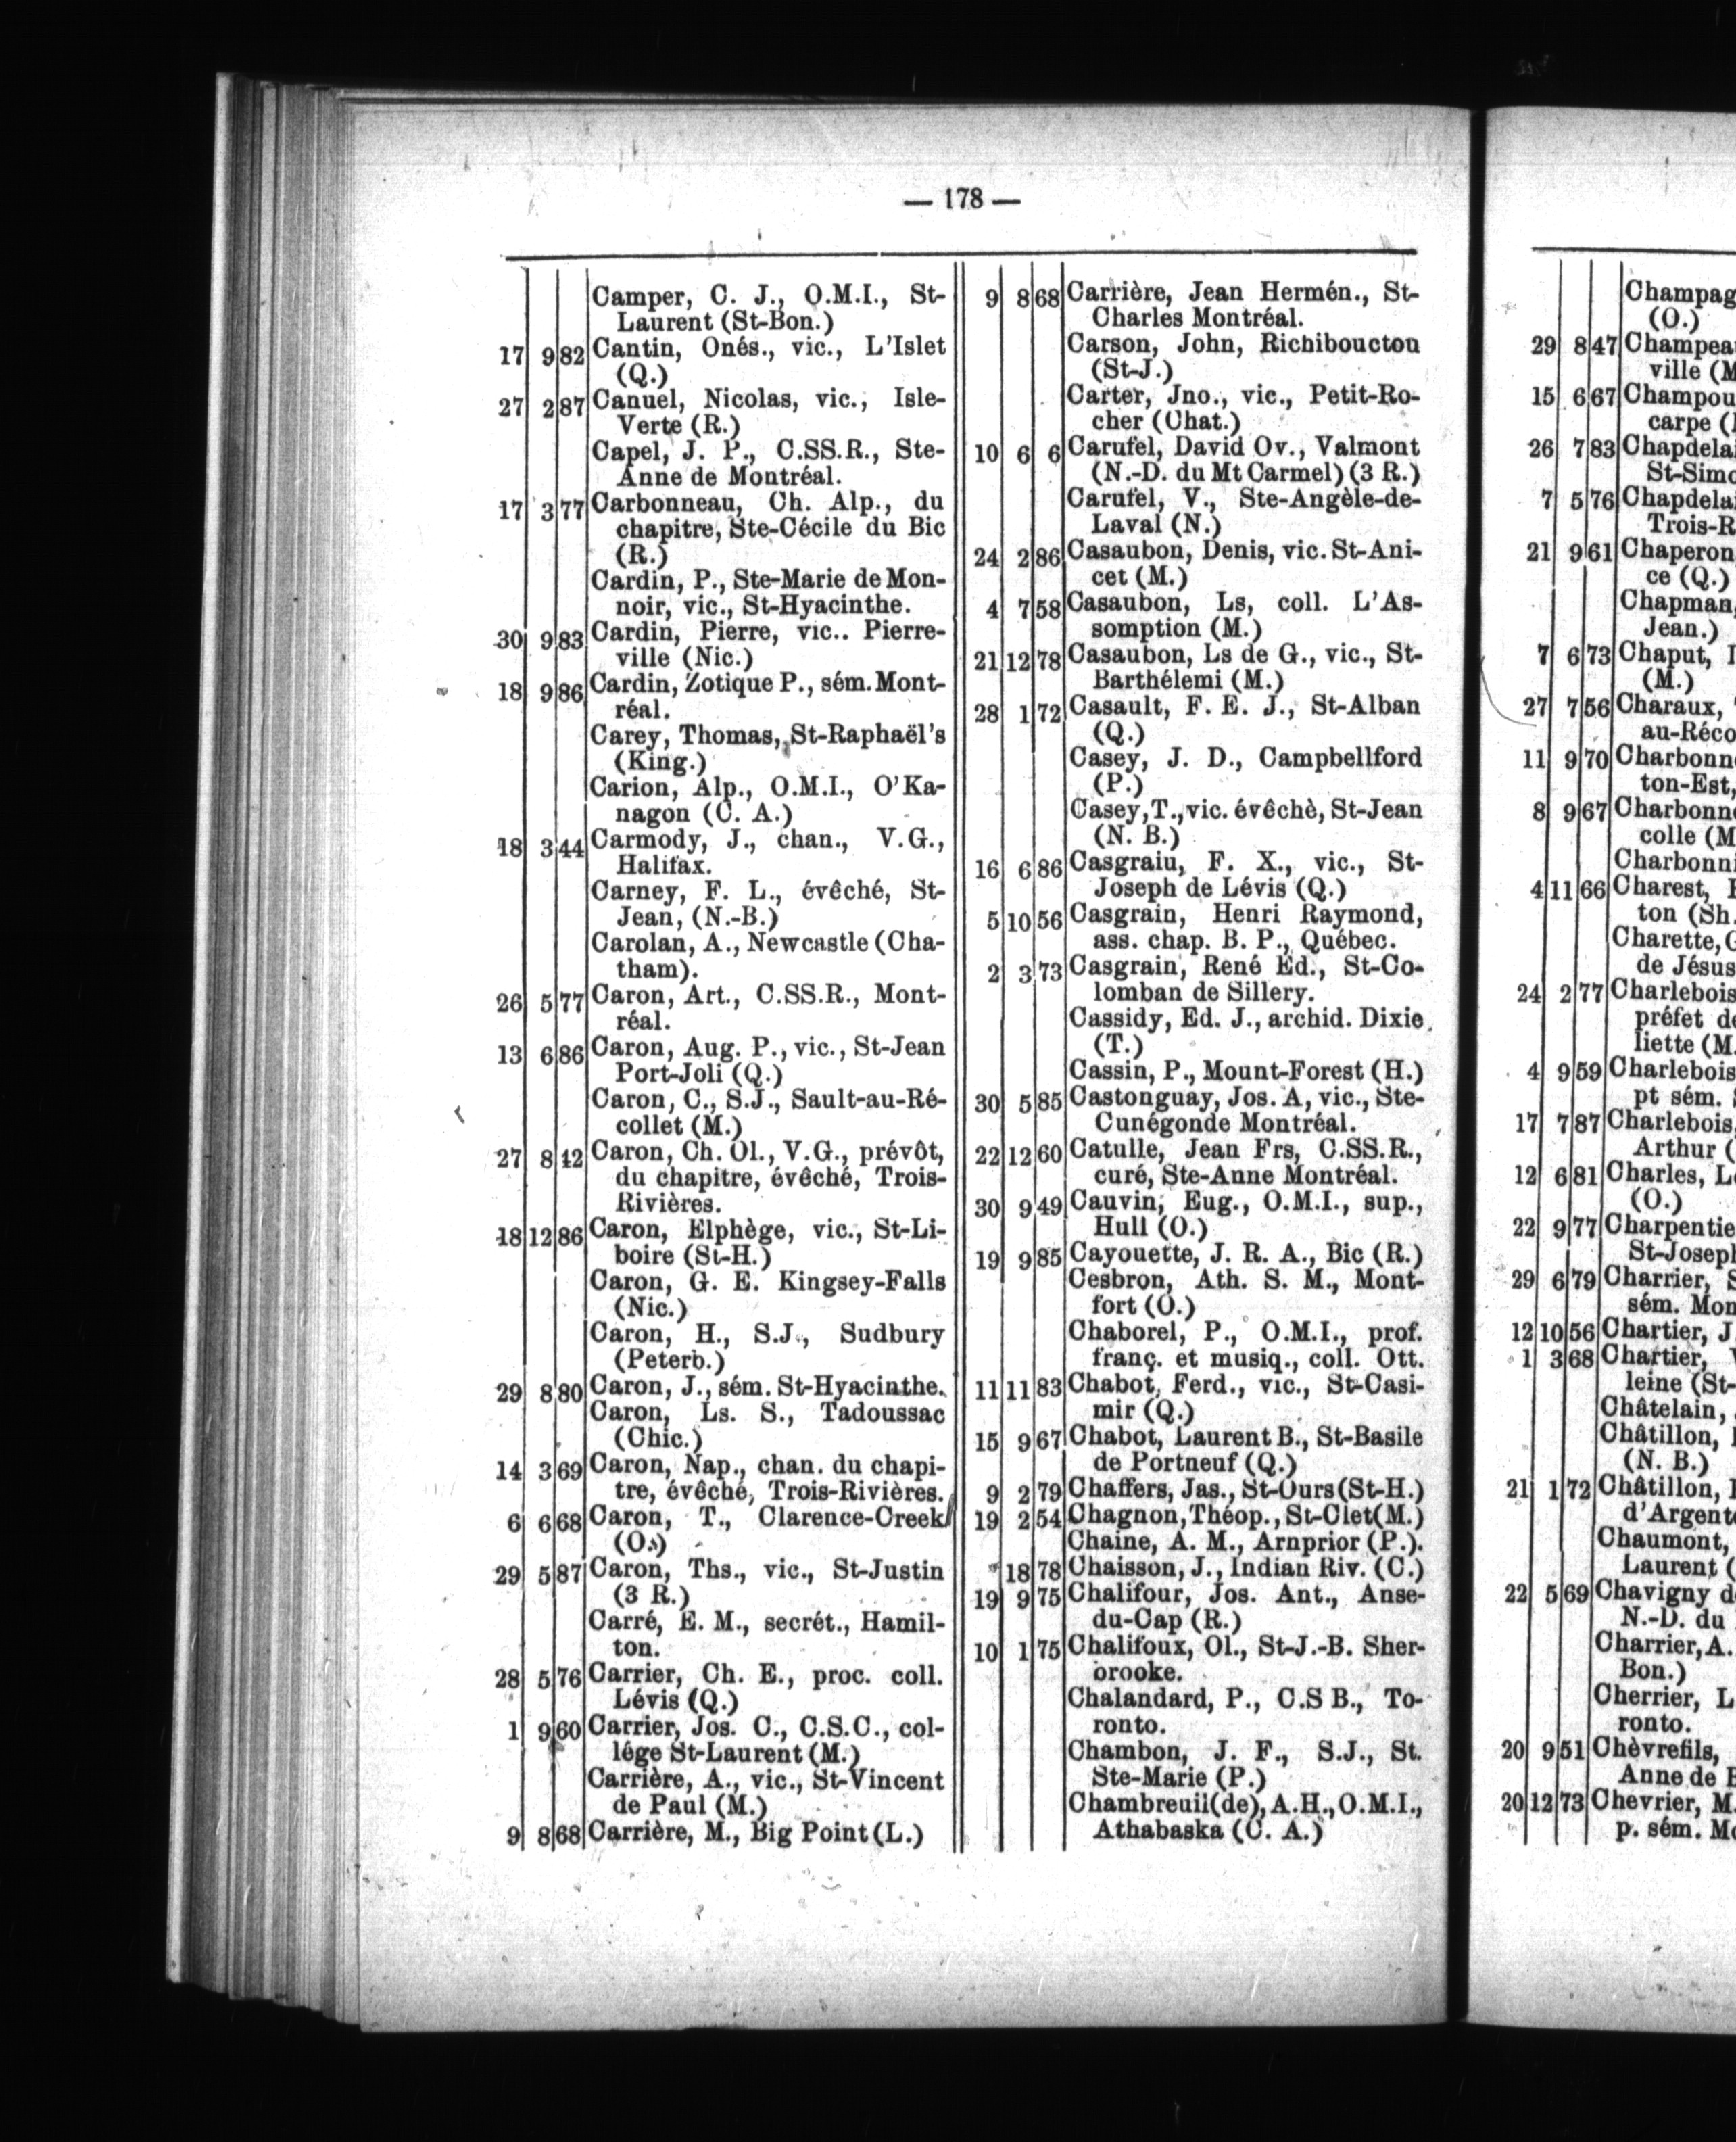 — 178 —
Camper, C. J., O.M.I., St-
Laurent (St-Bon.)
17 9 82 Cantin, Onés., vic., L'Islet
(Q.)
27 2 87 Canuel, Nicolas, vic., Isle-
Verte (R.)
Capel, J. P., C.SS.R., Ste-
Anne de Montréal.
17 3 77 Carbonneau, Ch. Alp., du
chapitre, Ste-Cécile du Bic
(R.)
Cardin, P., Ste-Marie de Mon-
noir, vic., St-Hyacinthe.
30 9 83 Cardin, Pierre, vic.. Pierre-
ville (Nic.)
18 9 86 Cardin, Zotique P., sém. Mont-
réal.
Carey, Thomas, St-Raphaël's
(King.)
Carion, Alp., O.M.I., O'Ka-
nagon (C. A.)
18 3 44 Carmody, J., chan., V.G.,
Halifax.
Carney, F. L., évêché, St-
Jean, (N.-B.)
Carolan, A., Newcastle (Cha-
tham).
26 5 77 Caron, Art., C.SS.R., Mont-
réal.
13 6 86 Caron, Aug. P., vic., St-Jean
Port-Joli (Q.)
Caron, C., S.J., Sault-au-Ré-
collet (M.)
27 8 42 Caron, Ch. Ol., V.G., prévôt,
du chapitre, évêché, Trois-
Rivières.
18 12 86 Caron, Elphège, vic., St-Li-
boire (St-H.)
Caron, G. E. Kingsey-Falls
(Nic.)
Caron, H., S.J., Sudbury
(Peterb.)
29 8 80 Caron, J., sém. St-Hyacinthe.
Caron, Ls. S., Tadoussac
(Chic.)
14 3 69 Caron, Nap., chan. du chapi-
tre, évêché, Trois-Rivières.
6 6 68 Caron, T., Clarence-Creek
(O.)
29 5 87 Caron, Ths., vic., St-Justin
(3 R.)
Carré, E. M., secrét., Hamil-
ton.
28 5 76 Carrier, Ch. E., proc. coll.
Lévis (Q.)
1 9 60 Carrier, Jos. C., C.S.C., col-
lége St-Laurent (M.)
Carrière, A., vic., St-Vincent
de Paul (M.)
9 8 68 Carrière, M., Big Point (L.)
9 8 68 Carrière, Jean Hermén., St-
Charles Montréal.
Carson, John, Richibouctou
(St-J.)
Carter, Jno., vic., Petit-Ro-
cher (Chat.)
10 6 6 Carufel, David Ov., Valmont
(N.-D. du Mt Carmel) (3 R.)
Carufel, V., Ste-Angèle-de-
Laval (N.)
24 2 86 Casaubon, Denis, vic. St-Ani-
cet (M.)
4 7 58 Casaubon, Ls, coll. L'As-
somption (M.)
21 12 78 Casaubon, Ls de G., vic., St-
Barthélemi (M.)
28 1 72 Casault, F. E. J., St-Alban
(Q.)
Casey, J. D., Campbellford
(P.)
Casey, T., vic. évêchè, St-Jean
(N. B.)
16 6 86 Casgraiu, F. X., vic., St-
Joseph de Lévis (Q.)
5 10 56 Casgrain, Henri Raymond,
ass. chap. B. P., Québec.
2 3 73 Casgrain, René Ed., St-Co-
lomban de Sillery.
Cassidy, Ed. J., archid. Dixie
(T.)
Cassin, P., Mount-Forest (H.)
30 5 85 Castonguay, Jos. A, vic., Ste-
Cunégonde Montréal.
22 12 60 Catulle, Jean Frs, C.SS.R.,
curé, Ste-Anne Montréal.
30 9 49 Cauvin, Eug., O.M.I., sup.,
Hull (O.)
19 9 85 Cayouette, J. R. A., Bic (R.)
Cesbron, Ath. S. M., Mont-
fort (O.)
Chaborel, P., O.M.I., prof.
franç. et musiq., coll. Ott.
11 11 83 Chabot, Ferd., vic., St-Casi-
mir (Q.)
15 9 67 Chabot, Laurent B., St-Basile
de Portneuf (Q.)
9 2 79 Chaffers, Jas., St-Ours (St-H.)
19 2 54 Chagnon, Théop., St-Clet (M.)
Chaine, A. M., Arnprior (P.).
18 78 Chaisson, J., Indian Riv. (C.)
19 9 75 Chalifour, Jos. Ant., Anse-
du-Cap (R.)
10 1 75 Chalifoux, Ol., St-J.-B. Sher-
brooke.
Chalandard, P., C.S B., To-
ronto.
Chambon, J. F., S.J., St.
Ste-Marie (P.)
Chambreuil (de), A.H., O.M.I.,
Athabaska (C. A.)
Champag
(O.)
29 8 47 Champea
ville (M
15 6 67 Champou
carpe (
26 7 83 Chapdela
St-Simo
7 5 76 Chapdela
Trois-R
21 9 61 Chaperon
ce (Q.)
Chapman,
Jean.)
7 6 73 Chaput,
(M.)
27 7 56 Charaux,
au-Réco
11 9 70 Charbonn
ton-Est,
8 9 67 Charbonn
colle (M
Charbonn
4 11 66 Charest,
ton (Sh.
Charette, G
de Jésus
24 2 77 Charlebois
préfet de
liette (M.
4 9 59 Charlebois
pt sém.
17 7 87 Charlebois,
Arthur (
12 6 81 Charles, L
(O.)
22 9 77 Charpentie
St-Joseph
29 6 79 Charrier, S
sém. Mon
12 10 56 Chartier, J
1 3 68 Chartier,
leine (St-
Châtelain,
Châtillon,
(N. B.)
21 1 72 Châtillon,
d'Argent
Chaumont,
Laurent (
22 5 69 Chavigny d
N.-D. du
Charrier, A.
Bon.)
Cherrier, L
ronto.
20 9 51 Chèvrefils,
Anne de
20 12 73 Chevrier, M.
p. sém. Mo